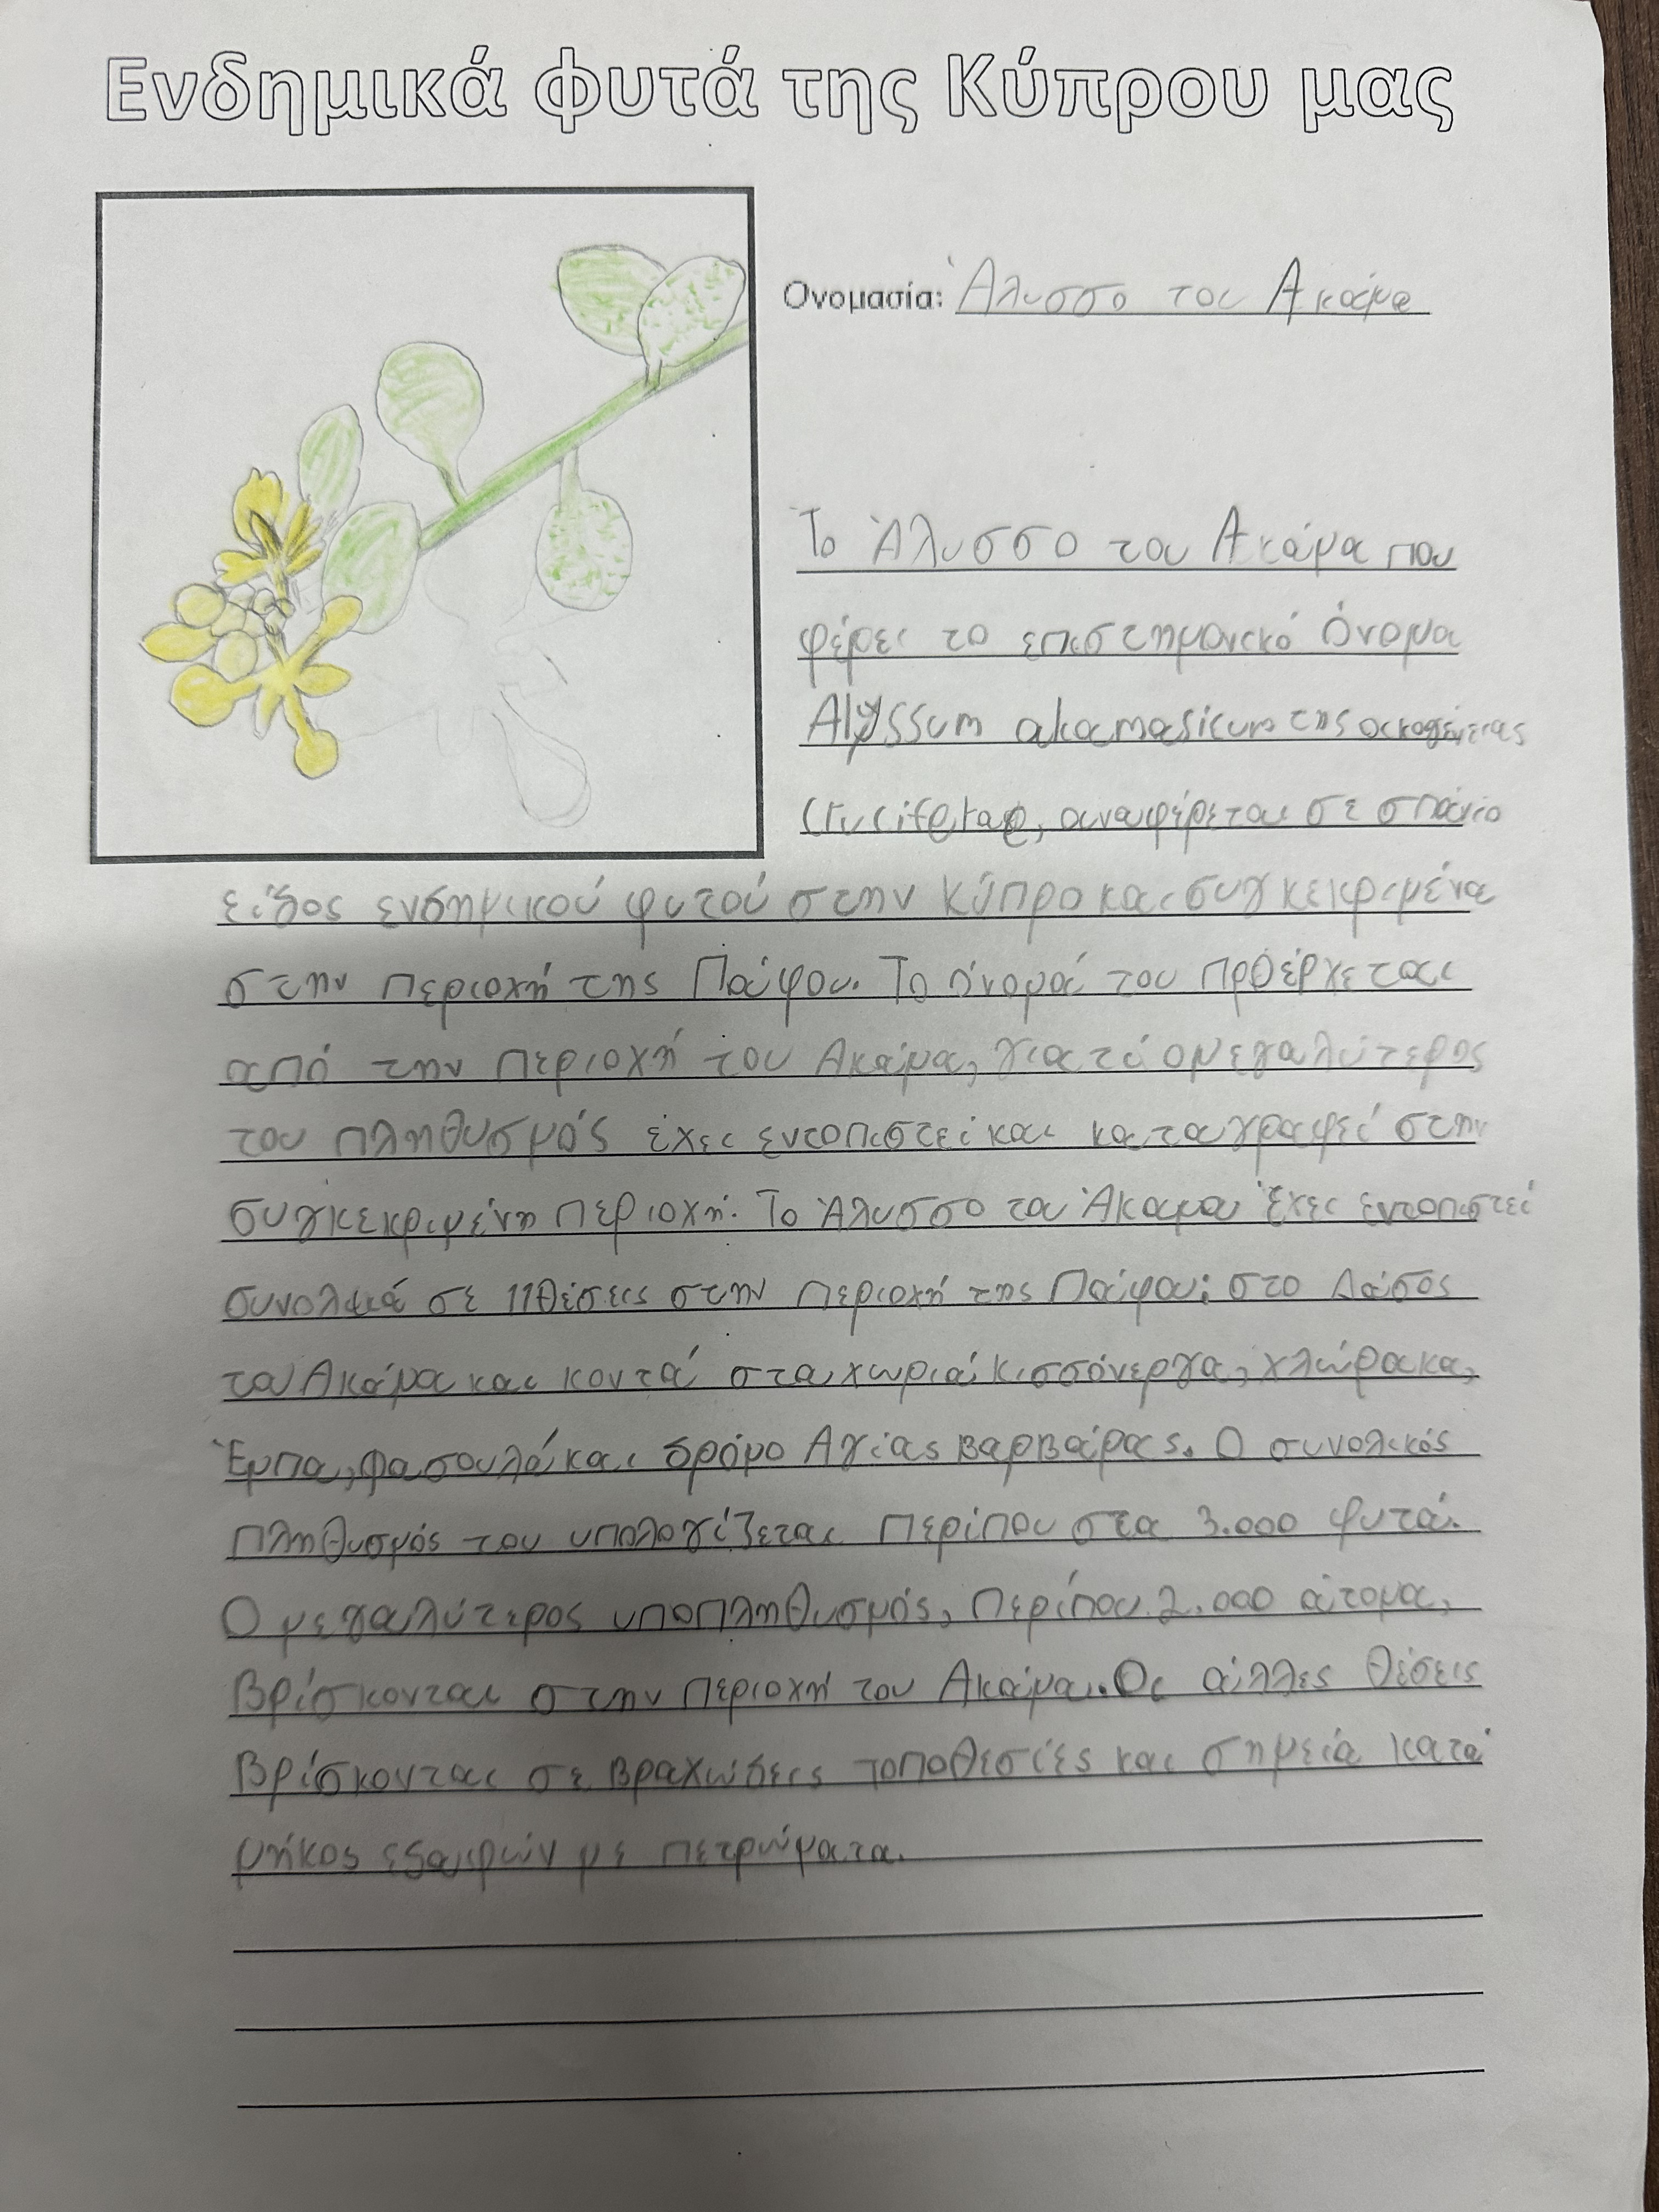 Ενδημικά φυτά της Κύπρου μας
Ονομασία: Άλυσσο του Ακάμα
Το Άλυσσο του Ακάμα που
φέρει το επιστημονικό όνομα
Alyssum akamasicum της οικογένειας
Cruciferae, αναφέρεται σε σπάνιο
είδος ενδημικού φυτού στην Κύπρο και συγκεκριμένα
στην περιοχή της Πάφου. Το όνομά του προέρχεται
από την περιοχή του Ακάμα, γιατί ο μεγαλύτερος
του πληθυσμός έχει εντοπιστεί και καταγραφεί στην
συγκεκριμένη περιοχή. Το Άλυσσο του Άκαμα Έχει εντοπιστεί
συνολικά σε 11 θέσεις στην περιοχή της Πάφου: στο Δάσος
του Ακάμα και κοντά στα χωριά Κισσόνεργα, Χλώρακα,
Έμπα, Φασουλά και δρόμο Αγίας Βαρβάρας. Ο συνολικός
πληθυσμός του υπολογίζεται περίπου στα 3.000 φυτά.
Ο μεγαλύτερος υποπληθυσμός, περίπου 2.000 άτομα,
βρίσκονται στην περιοχή του Ακάμα. Οι άλλες θέσεις
βρίσκονται σε βραχώδεις τοποθεσίες και σημεία κατά
μήκος εδαφών με πετρώματα.